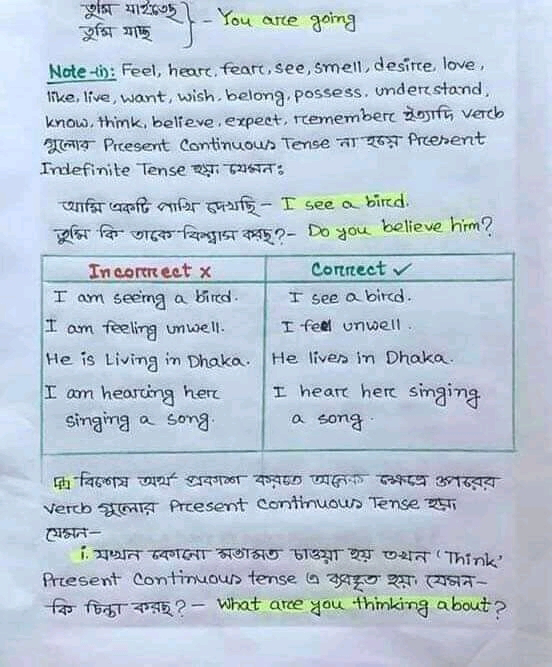 তুমি যাইতেছ
তুমি যাচ্ছ } - You are going
Note-(i): Feel, hear, fear, see, smell, desire, love,
like, live, want, wish, belong, possess, understand,
know, think, believe, expect, remember ইত্যাদি verb
গুলোর Present Continuous Tense না হয়ে Present
Indefinite Tense হয়। যেমন:
আমি একটি পাখি দেখছি - I see a bird.
তুমি কি তাকে বিশ্বাস করছ? - Do you believe him?
Incorrect × Correct ✓
I am seeing a bird. I see a bird.
I am feeling unwell. I feel unwell.
He is Living in Dhaka. He lives in Dhaka.
I am hearing her I hear her singing
singing a song. a song.
বিশেষ অর্থ প্রকাশ করতে অনেক ক্ষেত্রে উপরের
verb গুলোর Present Continuous Tense হয়।
যেমন-
i. যখন কোনো মতামত চাওয়া হয় তখন 'Think'
Present Continuous tense এ ব্যবহৃত হয়। যেমন-
কি চিন্তা করছ? - What are you thinking about?